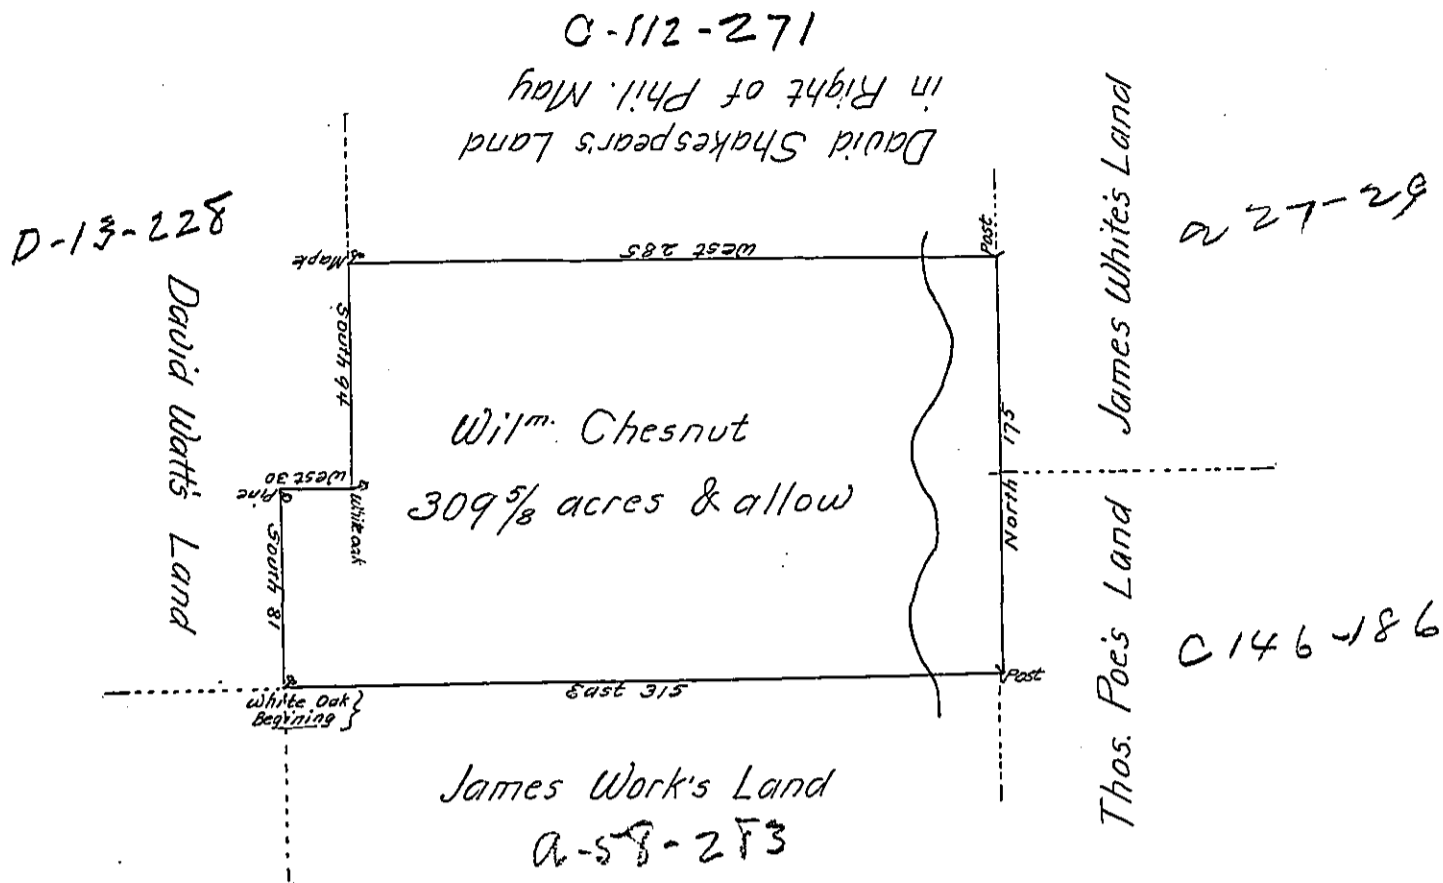 C-112-271
David Shakespear's Land
in Right of Phil. May
D-13-228
David Watt's Land
James White's Land
a 27-29
Maple
West 285
Post
South 94
Wilm. Chesnut
309 5/8 acres & allow
West 30
Pine
White oak
South 81
North 175
Thos. Poe's Land
C 146-186
White Oak
Begining
East 315
Post
James Work's Land
a-58-283